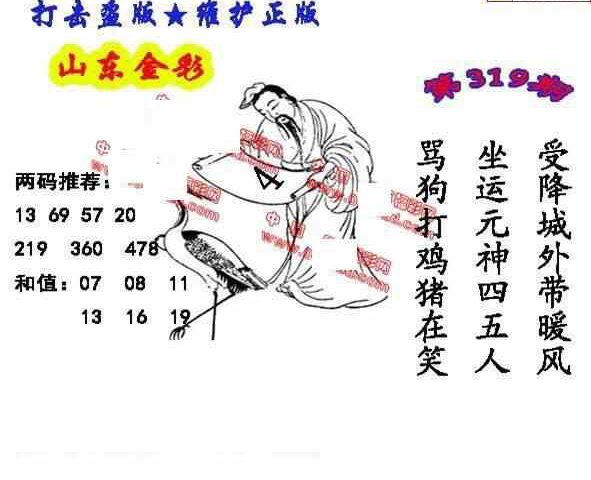 打击盗版★维护正版
山东金彩
第319期
两码推荐:
13 69 57 20
219 360 478
和值: 07 08 11
13 16 19
4
受降城外带暖风
坐运元神四五人
骂狗打鸡猪在笑